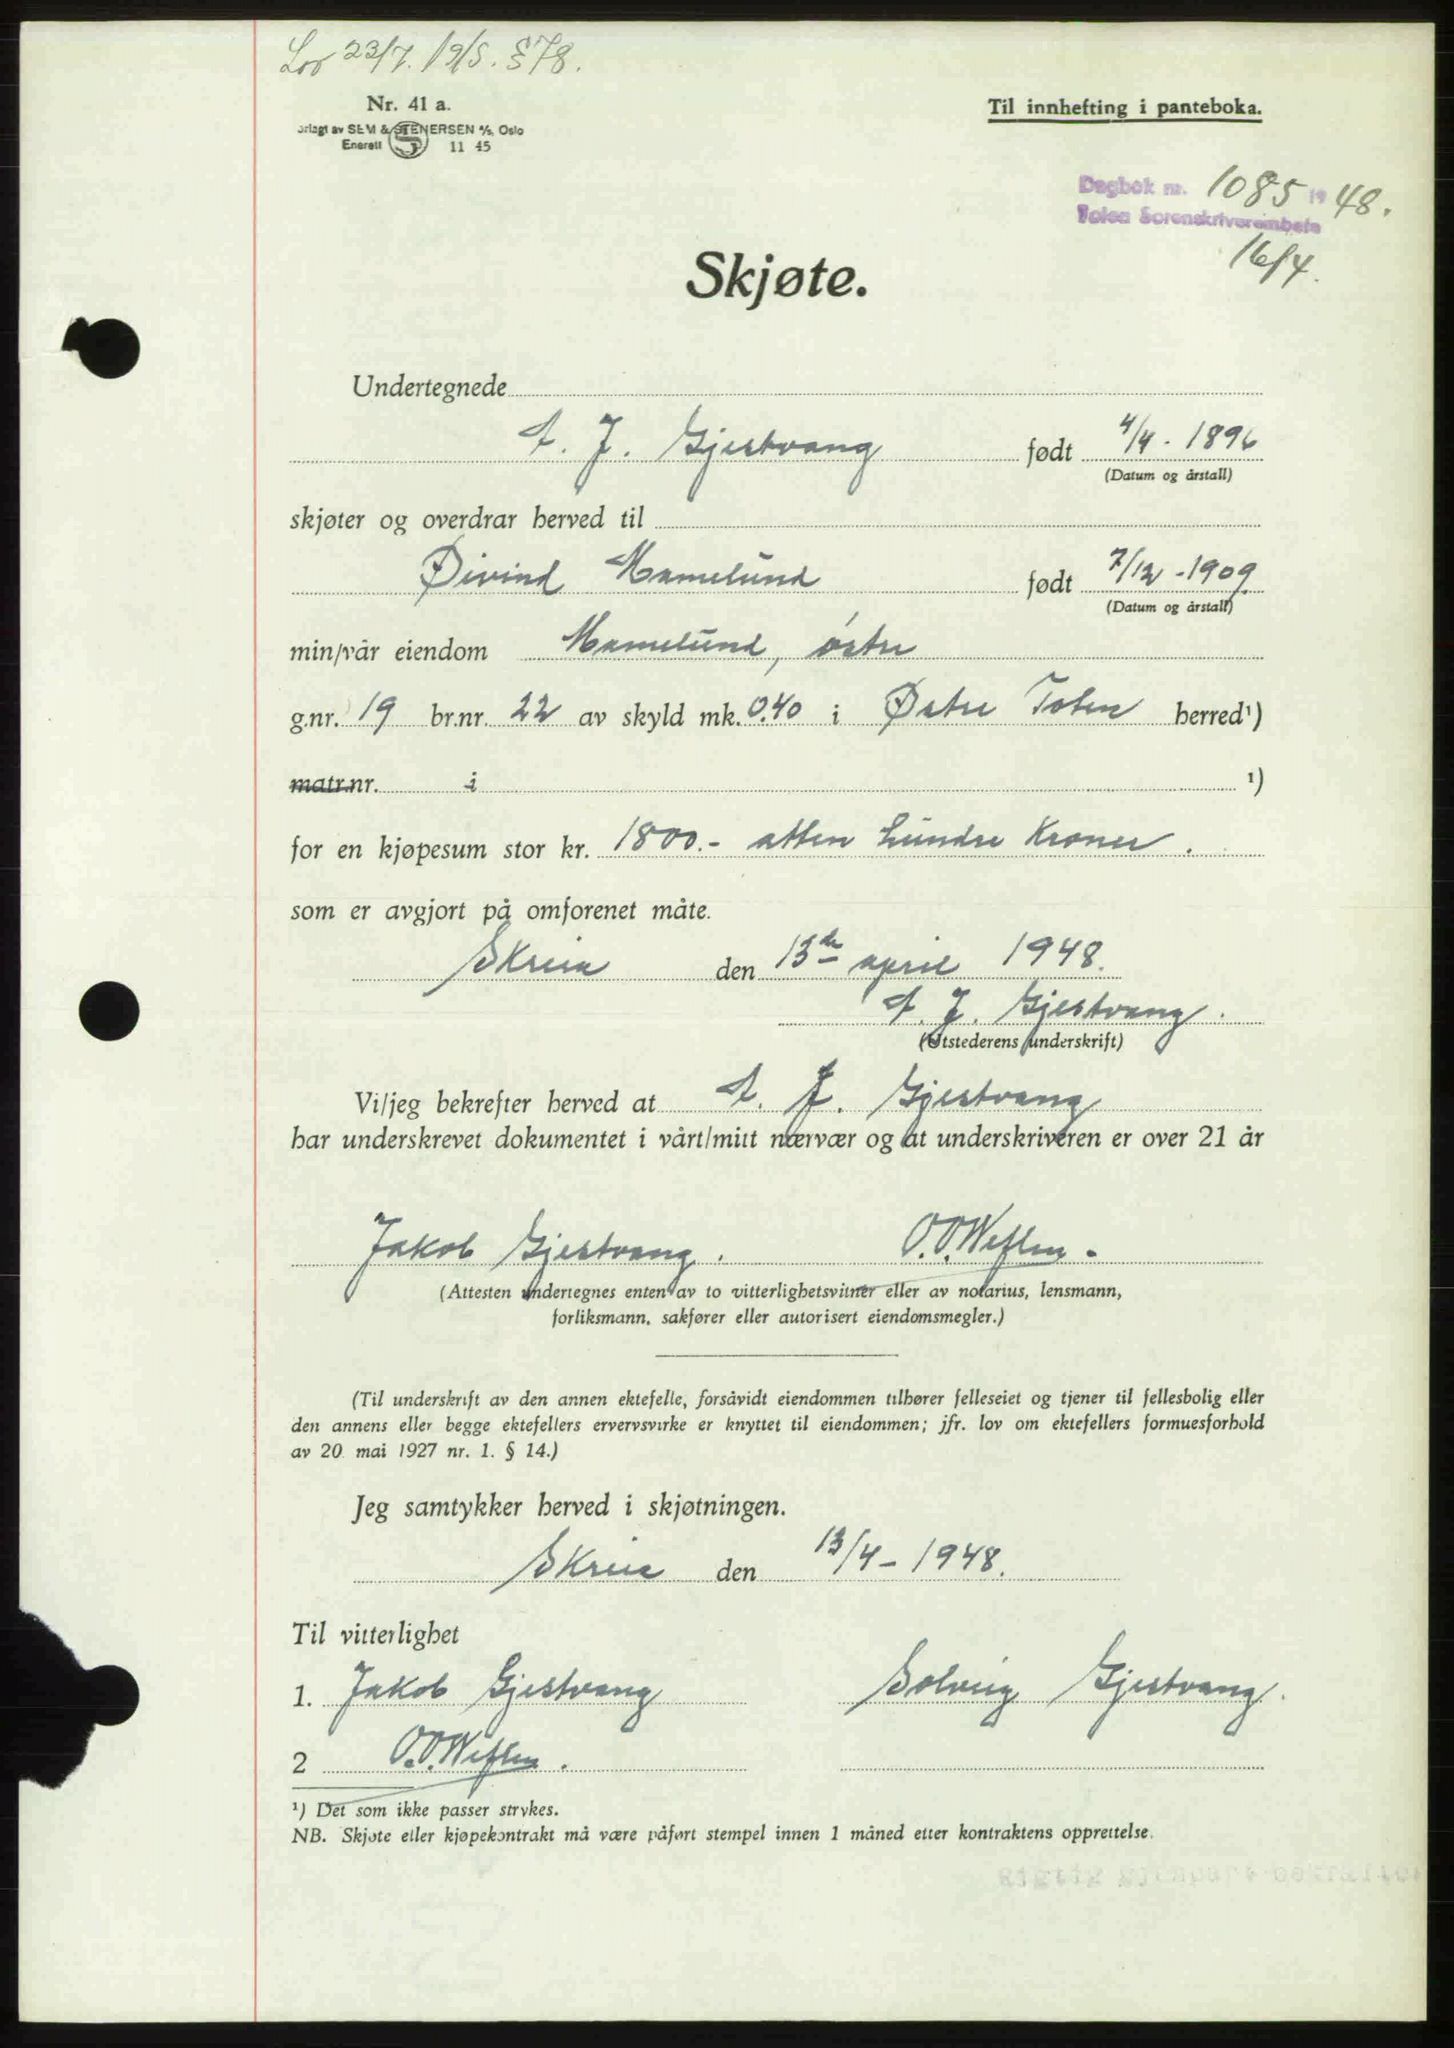 Lov 23/7. 19/5. § 78.
Nr. 41 a.
Til innhefting i panteboka.
orlagt av SEM & STENERSEN A/S, Oslo
Enerett 11 45
Dagbok nr. 1085 1948.
Toten Sorenskriverembete
16/4.
Skjøte.
Undertegnede
A. J. Gjestvang født 4/4 - 1896
(Datum og årstall)
skjøter og overdrar herved til
Øivind Mamelund født 7/12 - 1909.
(Datum og årstall)
min/vår eiendom Mamelund, østre
g.nr. 19 br.nr. 22 av skyld mk. 0.40 i Østre Toten herred¹)
matr.nr. i ¹)
for en kjøpesum stor kr. 1800.- atten hundre kroner.
som er avgjort på omforenet måte.
Skreia den 13de april 1948.
A. J. Gjestvang.
(Utstederens underskrift)
Vi/jeg bekrefter herved at A. J. Gjestvang
har underskrevet dokumentet i vårt/mitt nærvær og at underskriveren er over 21 år
Jakob Gjestvang. O.O. Weflen.
(Attesten undertegnes enten av to vitterlighetsvitner eller av notarius, lensmann,
forliksmann, sakfører eller autorisert eiendomsmegler.)
(Til underskrift av den annen ektefelle, forsåvidt eiendommen tilhører felleseiet og tjener til fellesbolig eller
den annens eller begge ektefellers ervervsvirke er knyttet til eiendommen; jfr. lov om ektefellers formuesforhold
av 20 mai 1927 nr. 1. § 14.)
Jeg samtykker herved i skjøtningen.
Skreia den 13/4 - 1948.
Til vitterlighet
1. Jakob Gjestvang Solveig Gjestvang.
2 O.O. Weflen.
¹) Det som ikke passer strykes.
NB. Skjøte eller kjøpekontrakt må være påført stempel innen 1 måned etter kontraktens opprettelse.